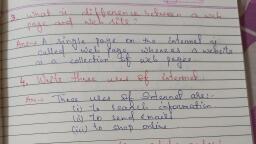 3. What is difference between a web
page and web site?
Ans:- A single page on the internet is
called web page, whereas a website
is a collection of web pages
4. Write three uses of internet.
Ans:- Three uses of Internet are:-
(i) To search information
(ii) To send emails
(iii) To shop online